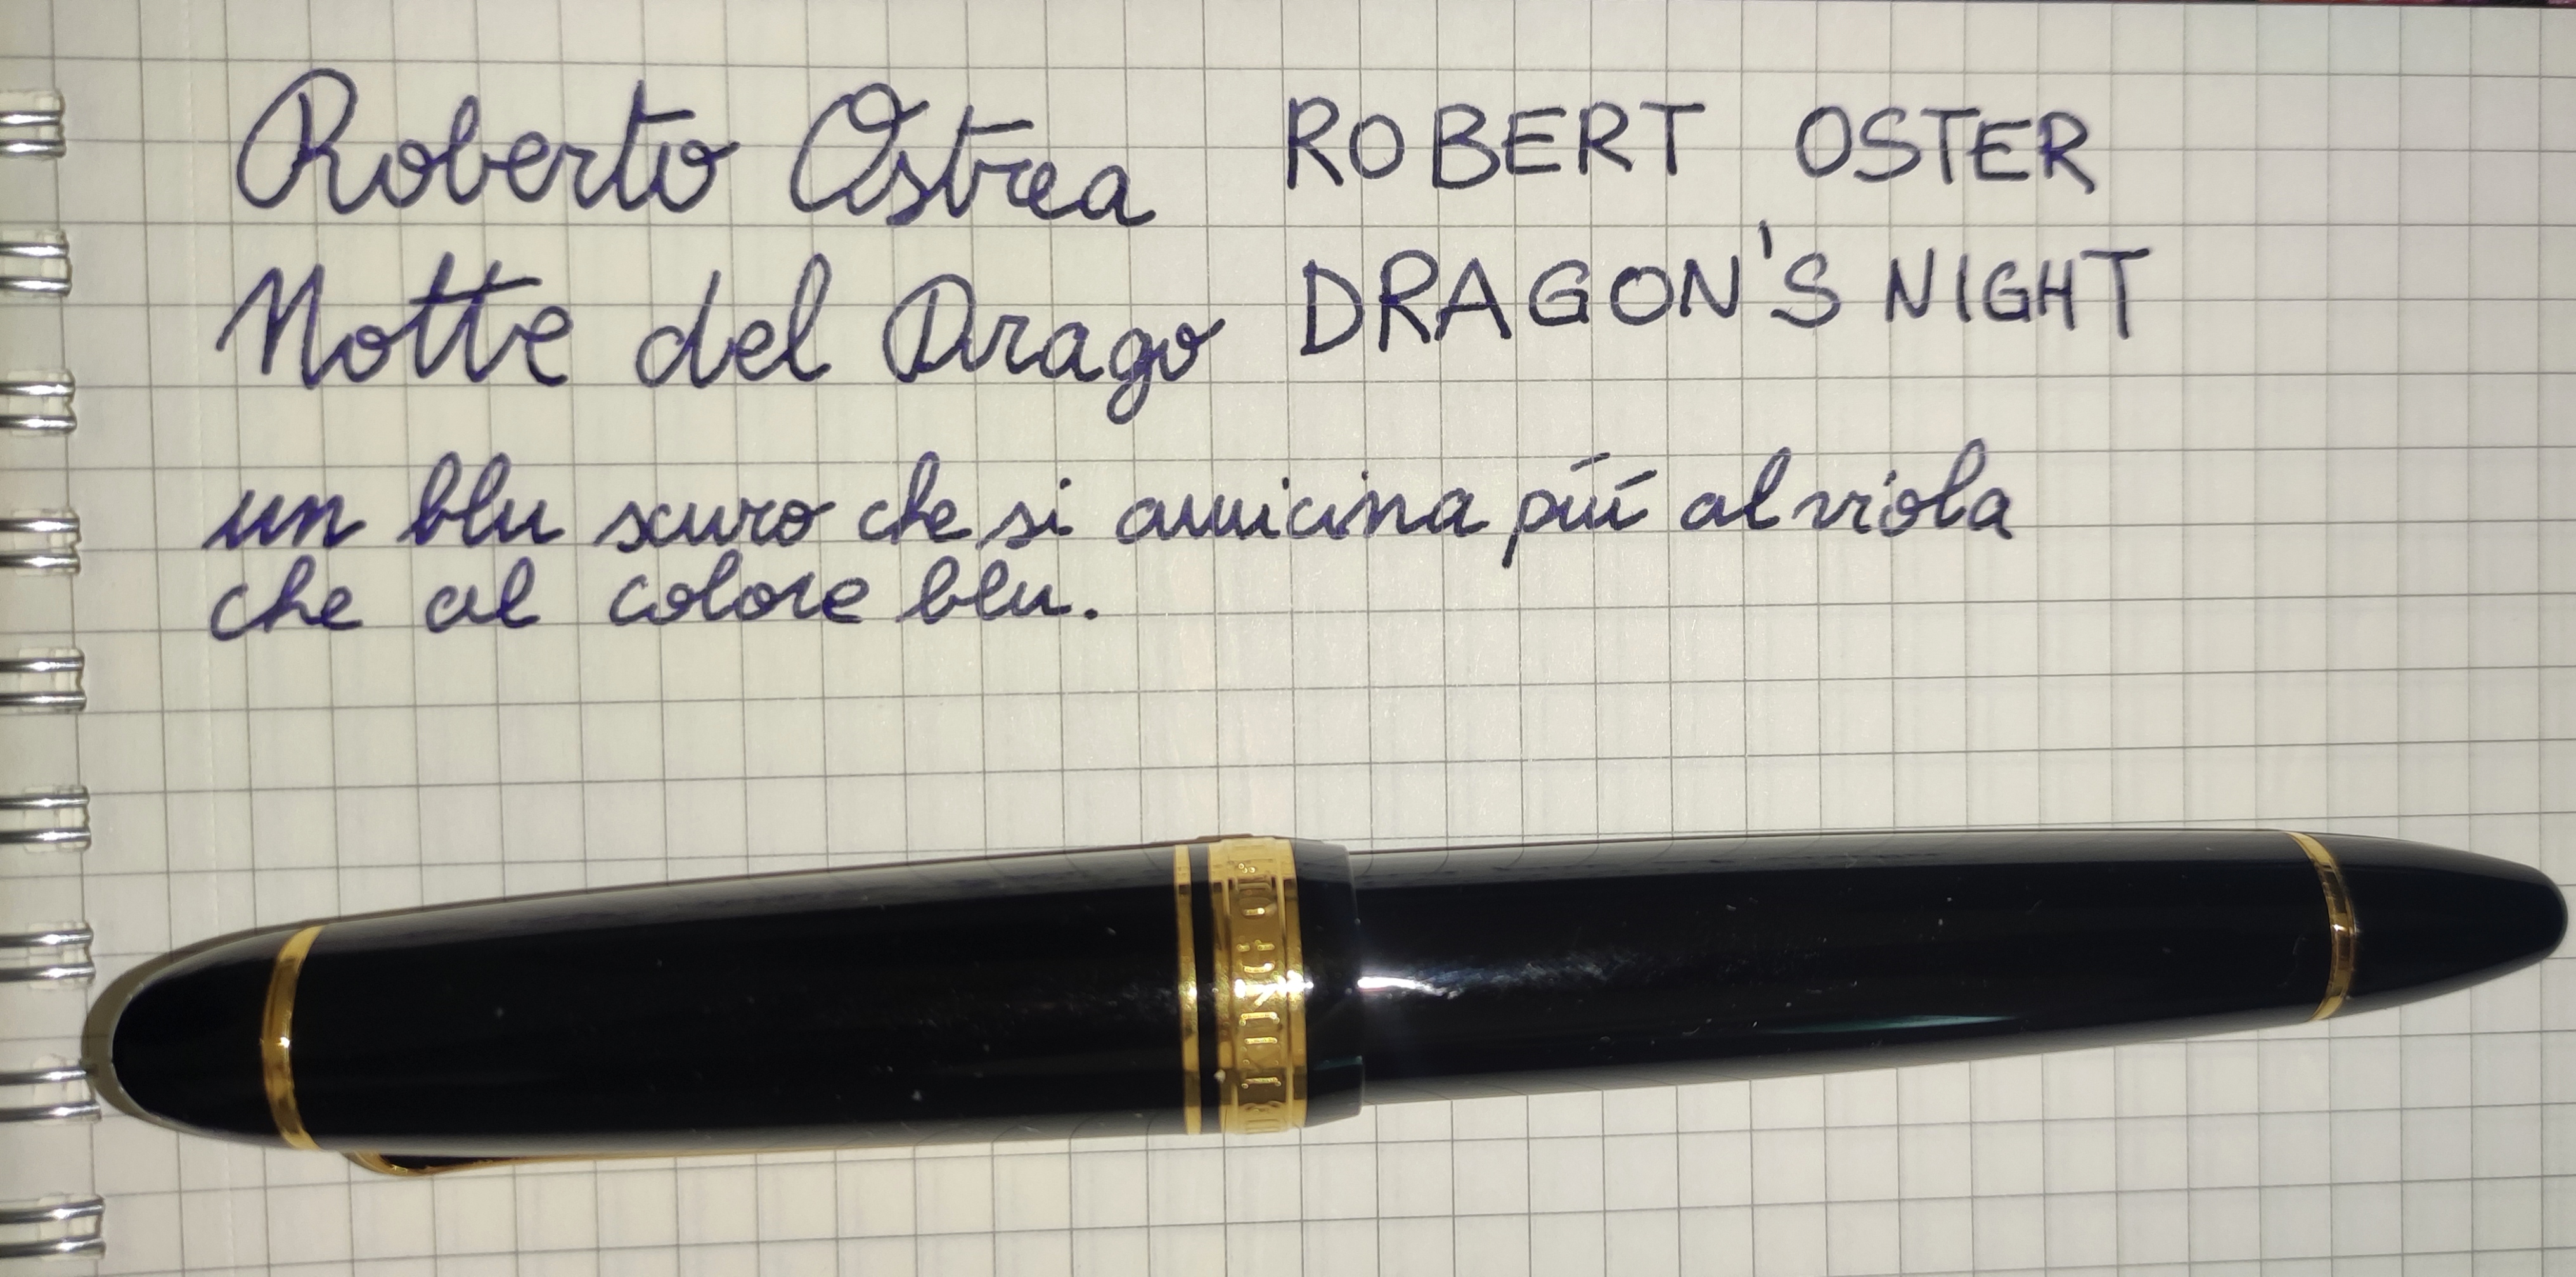 Roberto Ostrea
Notte del Drago
ROBERT OSTER
DRAGON'S NIGHT
un blu scuro che si avvicina più al viola
che al colore blu.